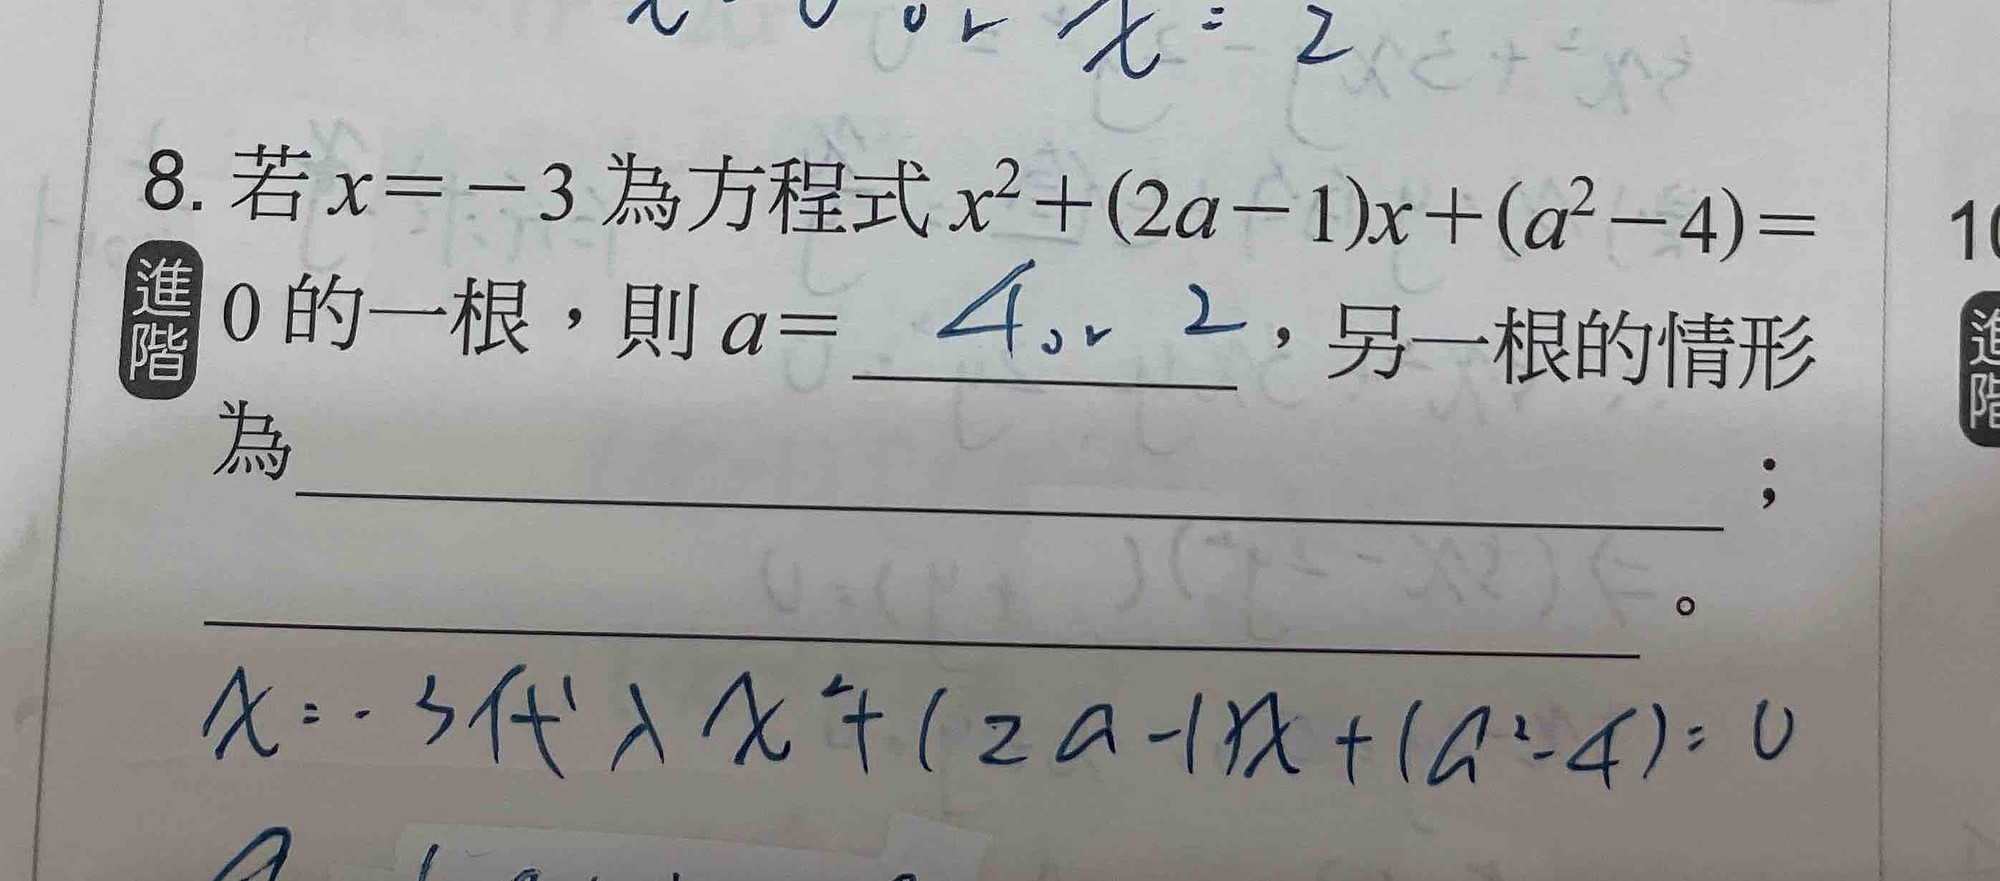 or x = 2
8. 若 x = －3 為方程式 x² + (2a－1)x + (a²－4) =
進階
0 的一根，則 a = 4 or 2，另一根的情形
為 ；
。
x = -3 代入 x² + (2a-1)x + (a²-4) = 0
10
進階